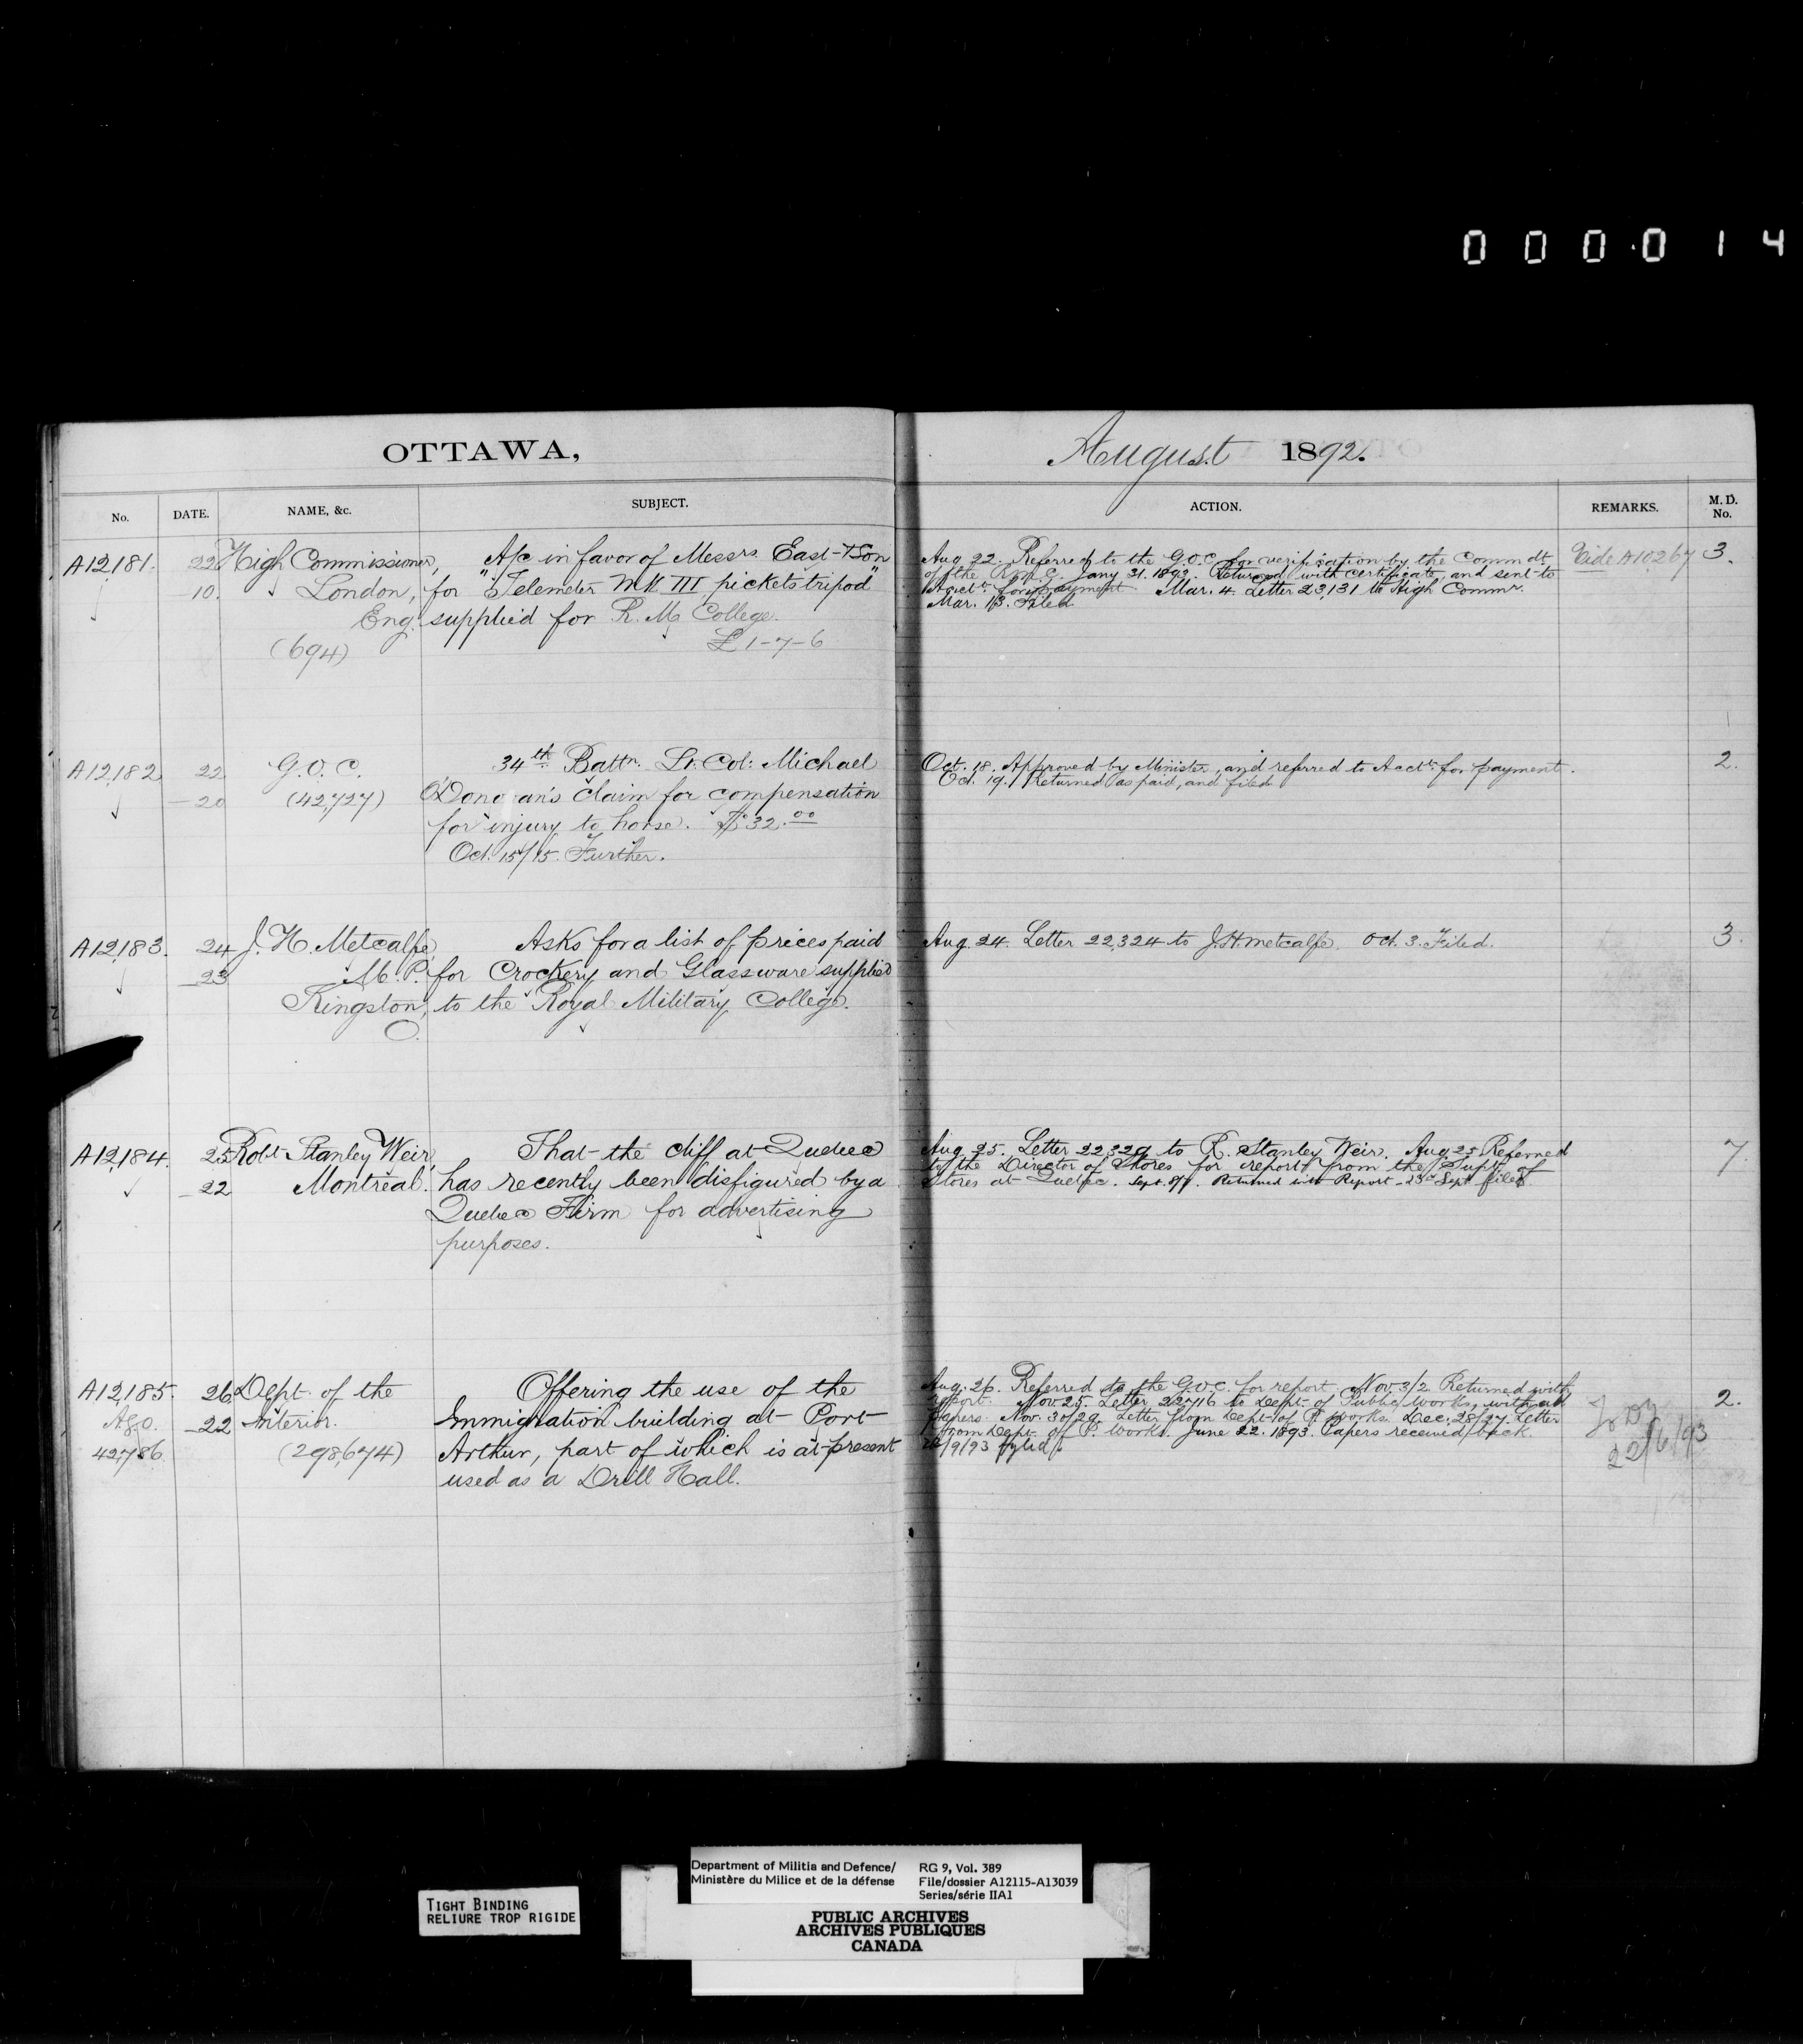 000014
OTTAWA,
August 1892.
No. DATE. NAME, &c. SUBJECT. ACTION. REMARKS. M. D. No.
A12,181. 22 High Commissioner, A/c in favor of Messrs. East & Son
10. London, for "Telemeter MK III pickets tripod"
Eng. supplied for R. M. College.
(694) £1-7-6
Aug 22. Referred to the G.O.C. for verification by the Commdt.
of the R.M.C. Jany 31. 1893. Returned with certificate, and sent to
Acct. for payment Mar. 4. Letter 23,131 to High Commr.
Mar. 13. Filed
Vide A10267 3.
A12,182 22 G.O.C. 34th Battn. Lt. Col: Michael
20 (42,727) O'Donovan's claim for compensation
for injury to horse. $32.00
Oct. 15/15. Further.
Oct. 18. Approved by Minister, and referred to Acct. for payment.
Oct. 19. Returned as paid, and filed
2.
A12,183. 24 J. H. Metcalfe, Asks for a list of prices paid
23 M.P. for Crockery and Glassware supplied
Kingston, to the Royal Military College.
O.
Aug. 24. Letter 22,324 to J.H. Metcalfe. Oct. 3. Filed.
3.
A12,184. 25 Robt. Stanley Weir, That the cliff at Quebec
22 Montreal. has recently been disfigured by a
Quebec Firm for advertising
purposes.
Aug. 25. Letter 22,329 to R. Stanley Weir. Aug. 25 Referred
to the Director of Stores for report from the Supt. of
Stores at Quebec. Sept. 8/7. Returned with Report - 23rd Sept filed
7.
A12,185. 26 Dept. of the Offering the use of the
Ago. 22 Interior. Immigration building at Port
42,786 (298,674) Arthur, part of which is at present
used as a Drill Hall.
Aug. 26. Referred to the G.O.C. for report. Nov 3/2 Returned with
report. Nov 25. Letter 22,716 to Dept. of Public Works, with all
papers. Nov. 30/29. Letter from Dept. of P. Works. Dec. 28/27. Letter
from Dept. of P. Works. June 22. 1893. Papers received back.
/9/93 fyled
22/6/93
2.
TIGHT BINDING
RELIURE TROP RIGIDE
Department of Militia and Defence/
Ministère du Milice et de la défense
RG 9, Vol. 389
File/dossier A12115-A13039
Series/série IIA1
PUBLIC ARCHIVES
ARCHIVES PUBLIQUES
CANADA